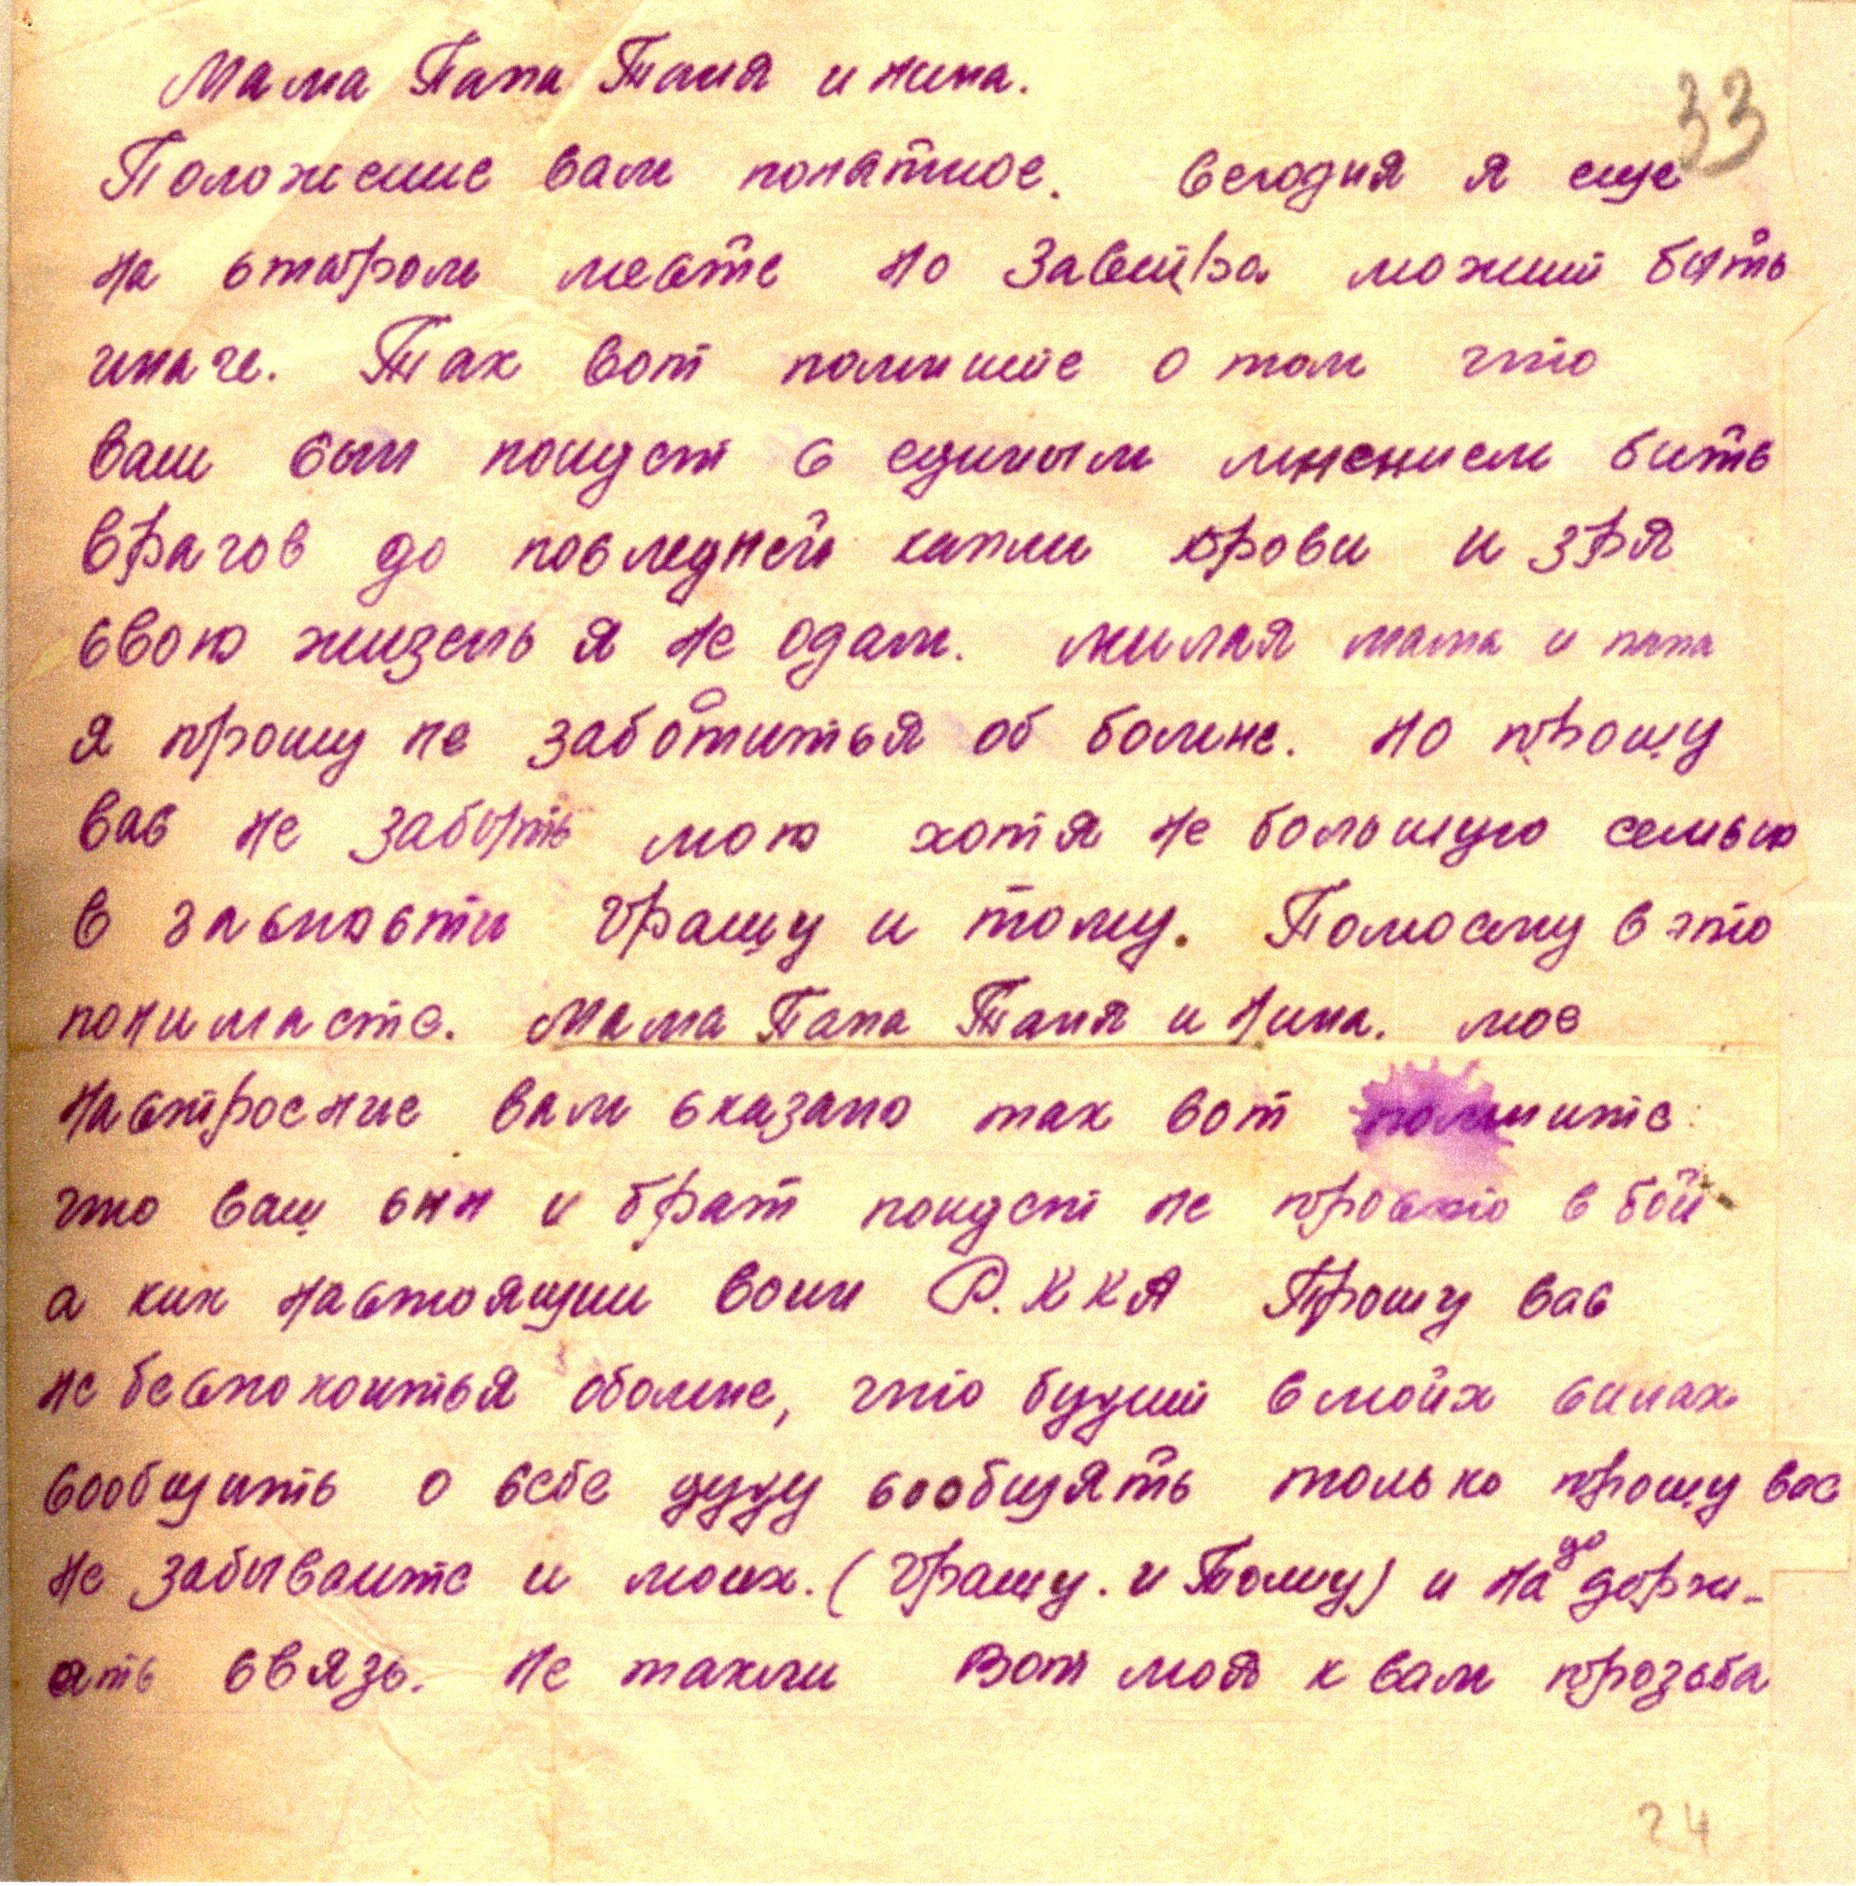 Мама Папа Таня и нина.
33
Положение вам понятное. Сегодня я еще
на старом месте но завтра может быть
иначе. Так вот помните о том что
ваш сын поидет с единым мнением бить
врагов до последней капли крови и зря
свою жизень я не одам. милая мама и папа
я прошу не заботиться об бомне. но прошу
вас не забыть мою хотя не большую семью
в часности Грашу и тому. Помоему в это
понимаете. Мама Папа Таня и нина. мое
настроение вам сказано так вот помните
что ваш сын и брат поидет не просто в бой
а как настоящии воин Р.ККА Прошу вас
не беспокоиться обомне, что будит в моих силах
сообщить о себе буду сообщять только прошу вас
не забываите и моих. (Грашу. и Тому) и надо доржи-
ать связь. не такли Вот моя к вам прозьба
24